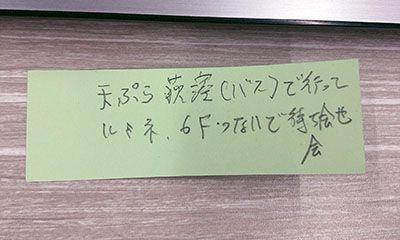 天ぷら 荻窪(バス)で行って
ルミネ、6Fつな八で待ち会せ
会